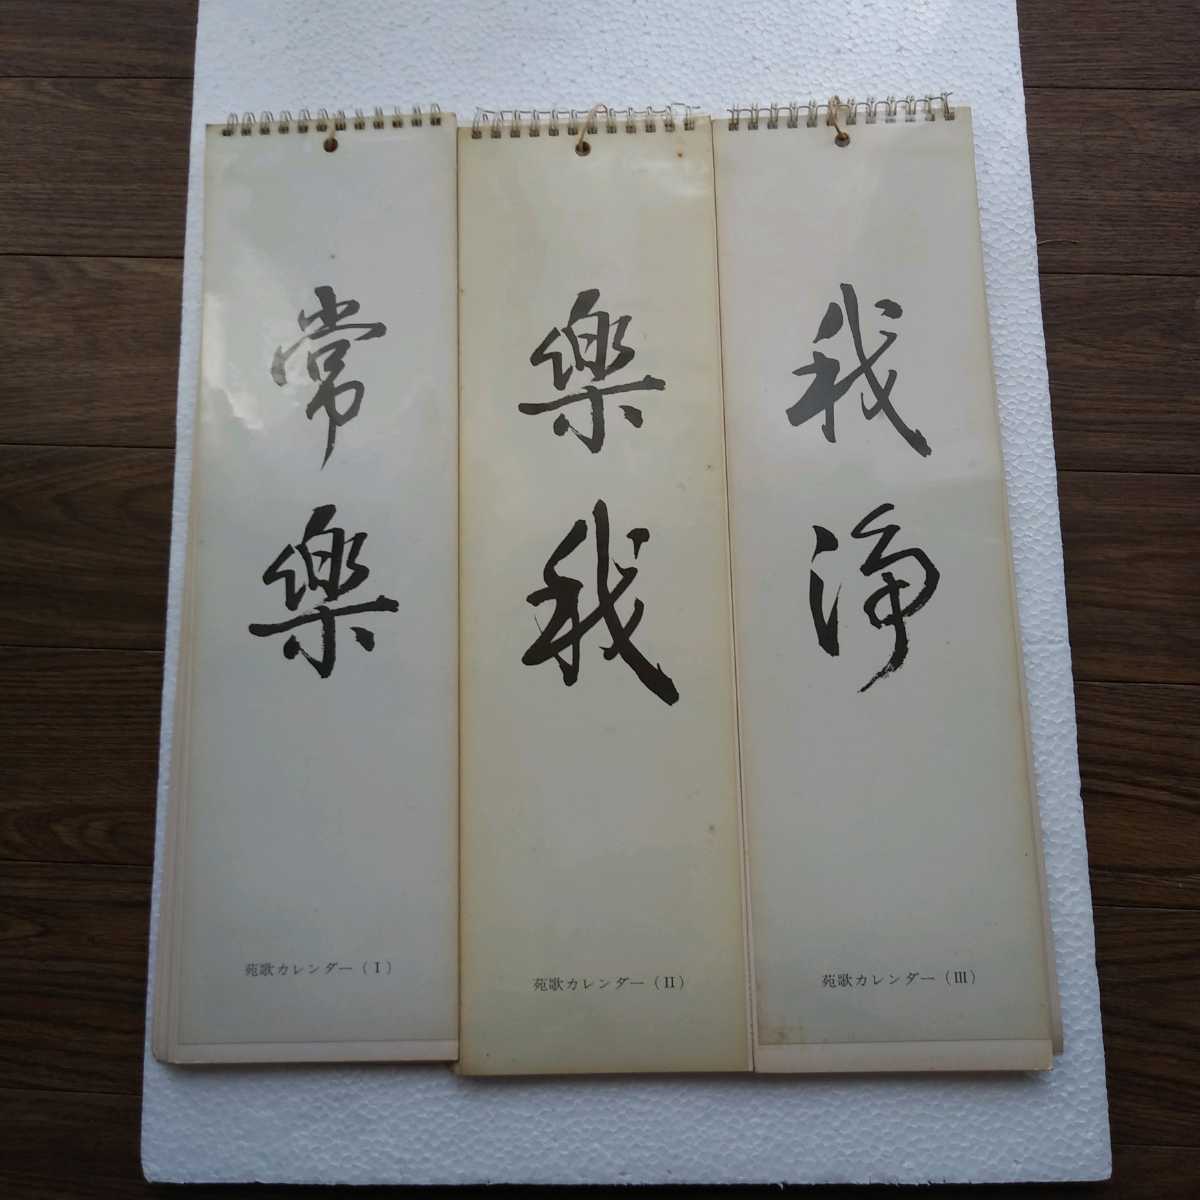 常樂
苑歌カレンダー（Ⅰ）
樂我
苑歌カレンダー（Ⅱ）
我淨
苑歌カレンダー（Ⅲ）